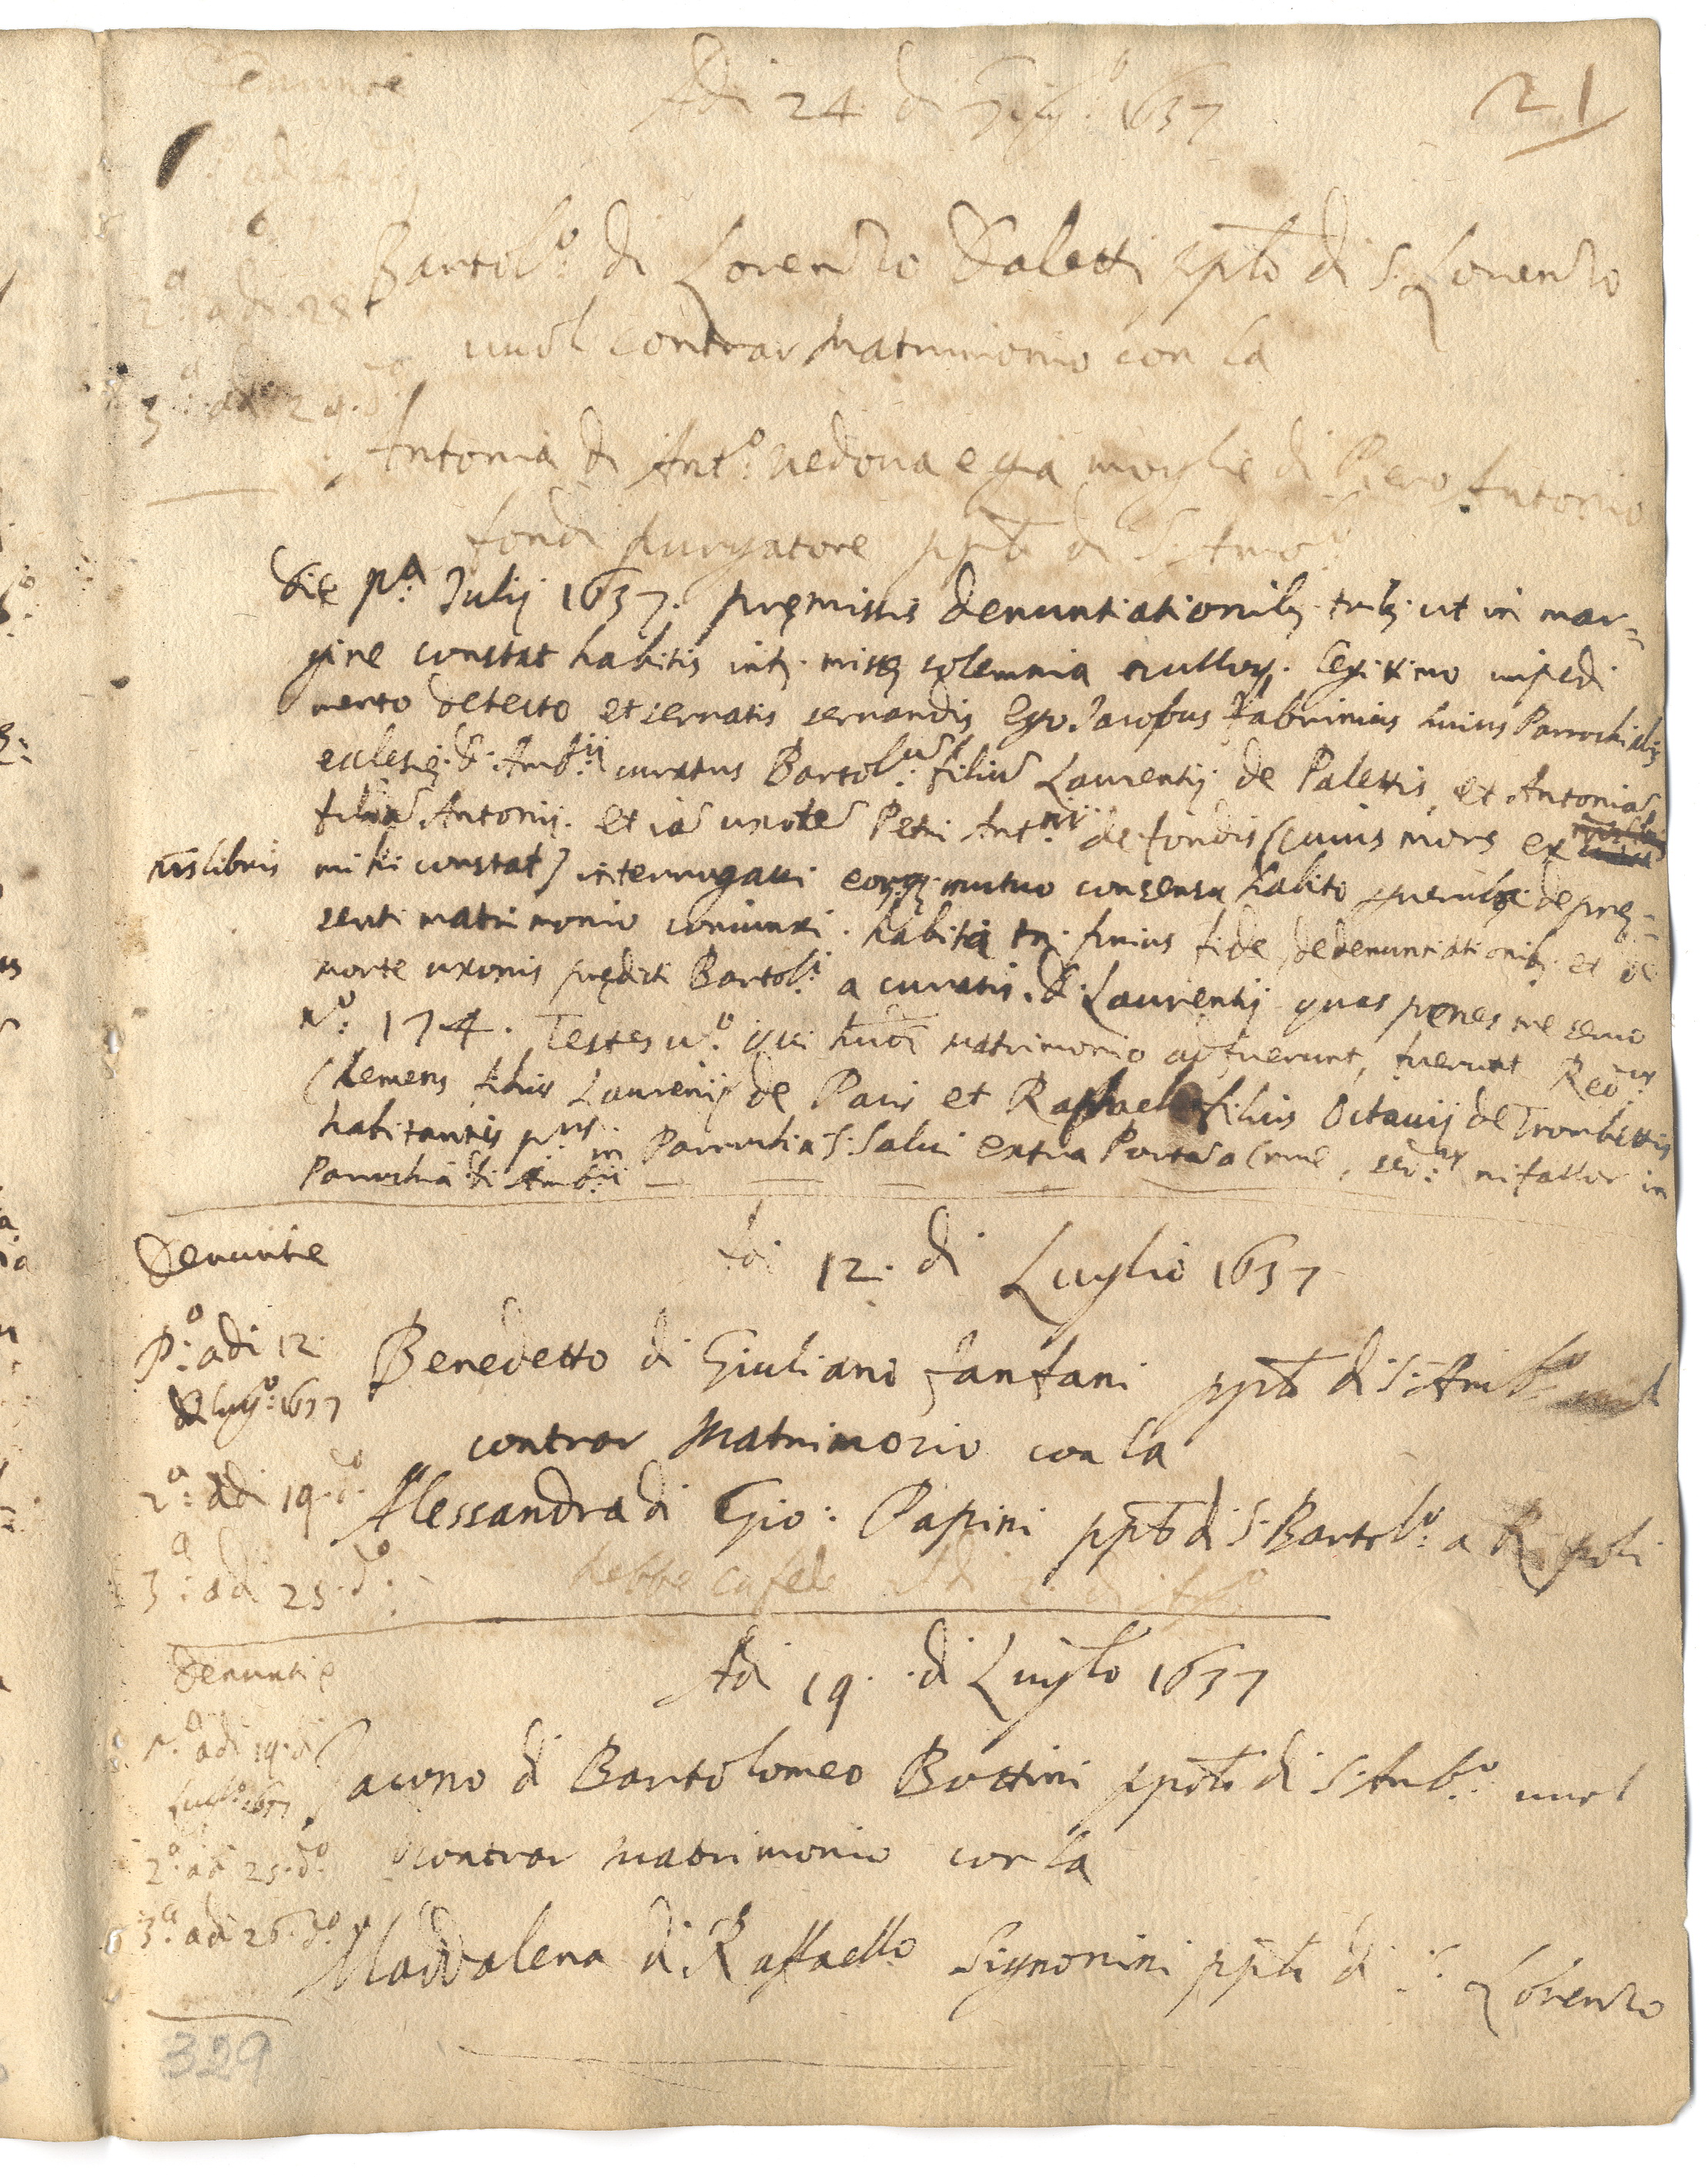 Denuntie
Adi 24 di Giug.º 1637
21
Bartol.º di Lorenzo Paletti pplo di S. Lorenzo
vuol contrar Matrimonio con la
2.ª adi 28
3.ª adi 29. d.º
Antonia di Ant.º vedova e gia moglie di Piero Antonio
fondi purgatore pplo di S. Amb.º
Die p.ª Julij 1637. premissis denuntiationib; trib; ut in mar=
gine constat habitis int; missę solemnia nulloq; legitimo impedi
mento detecto et servatis servandis Ego Jacobus Fabrinius huius Parrochialis
ecclesię S. Amb.ij curatus Bartol.um filium Laurentij de Palettis, et Antoniam
filiam Antonij. et iam uxorem Petri Ant.nij de fondis (cuius mors ex
ms libris
mihi constat) interrogavi eorq; mutuo consensu habito per verba de prę=
senti matrimonio coniunxi. habita tn. prius fide de denuntiationib; et de
morte uxoris prędicti Bartol.i a curatis S. Laurentij quas penes me servo
N.º 174. Testes v.º qui huiõi matrimonio adfuerunt, fuerunt Red.us
Clemens filius Laurentij de Pacis et Raphael filius Octavij de Trombettis
habitantis p.us in Parrochia S. Salvi extra Portam a Cruce, sed.us ni fallor in
Parrochia S. Amb.ij
Denuntie
Adi 12. di Luglio 1637
P.ª adi 12
di lug.º 1637
Benedetto di Giuliano Fanfani pplo di S. Amb.º vuol
contrar Matrimonio con la
2.ª adi 19. d.º
Alessandra di Gio: Papini pplo di S. Bartol.º a Ripoli
3.ª adi 25. d.º
hebbe la fede Adi 2 di
Denuntie
Adi 19. di Luglo 1637
P.ª adi 19. di
Lugl.º 1637
Jacopo di Bartolomeo Bottini pplo di S. Amb.º vuol
2.ª adi 25. d.º
contrar matrimonio con la
3.ª adi 26. d.º
Maddalena di Raffaello Signorini pplo di S. Lorenzo
329